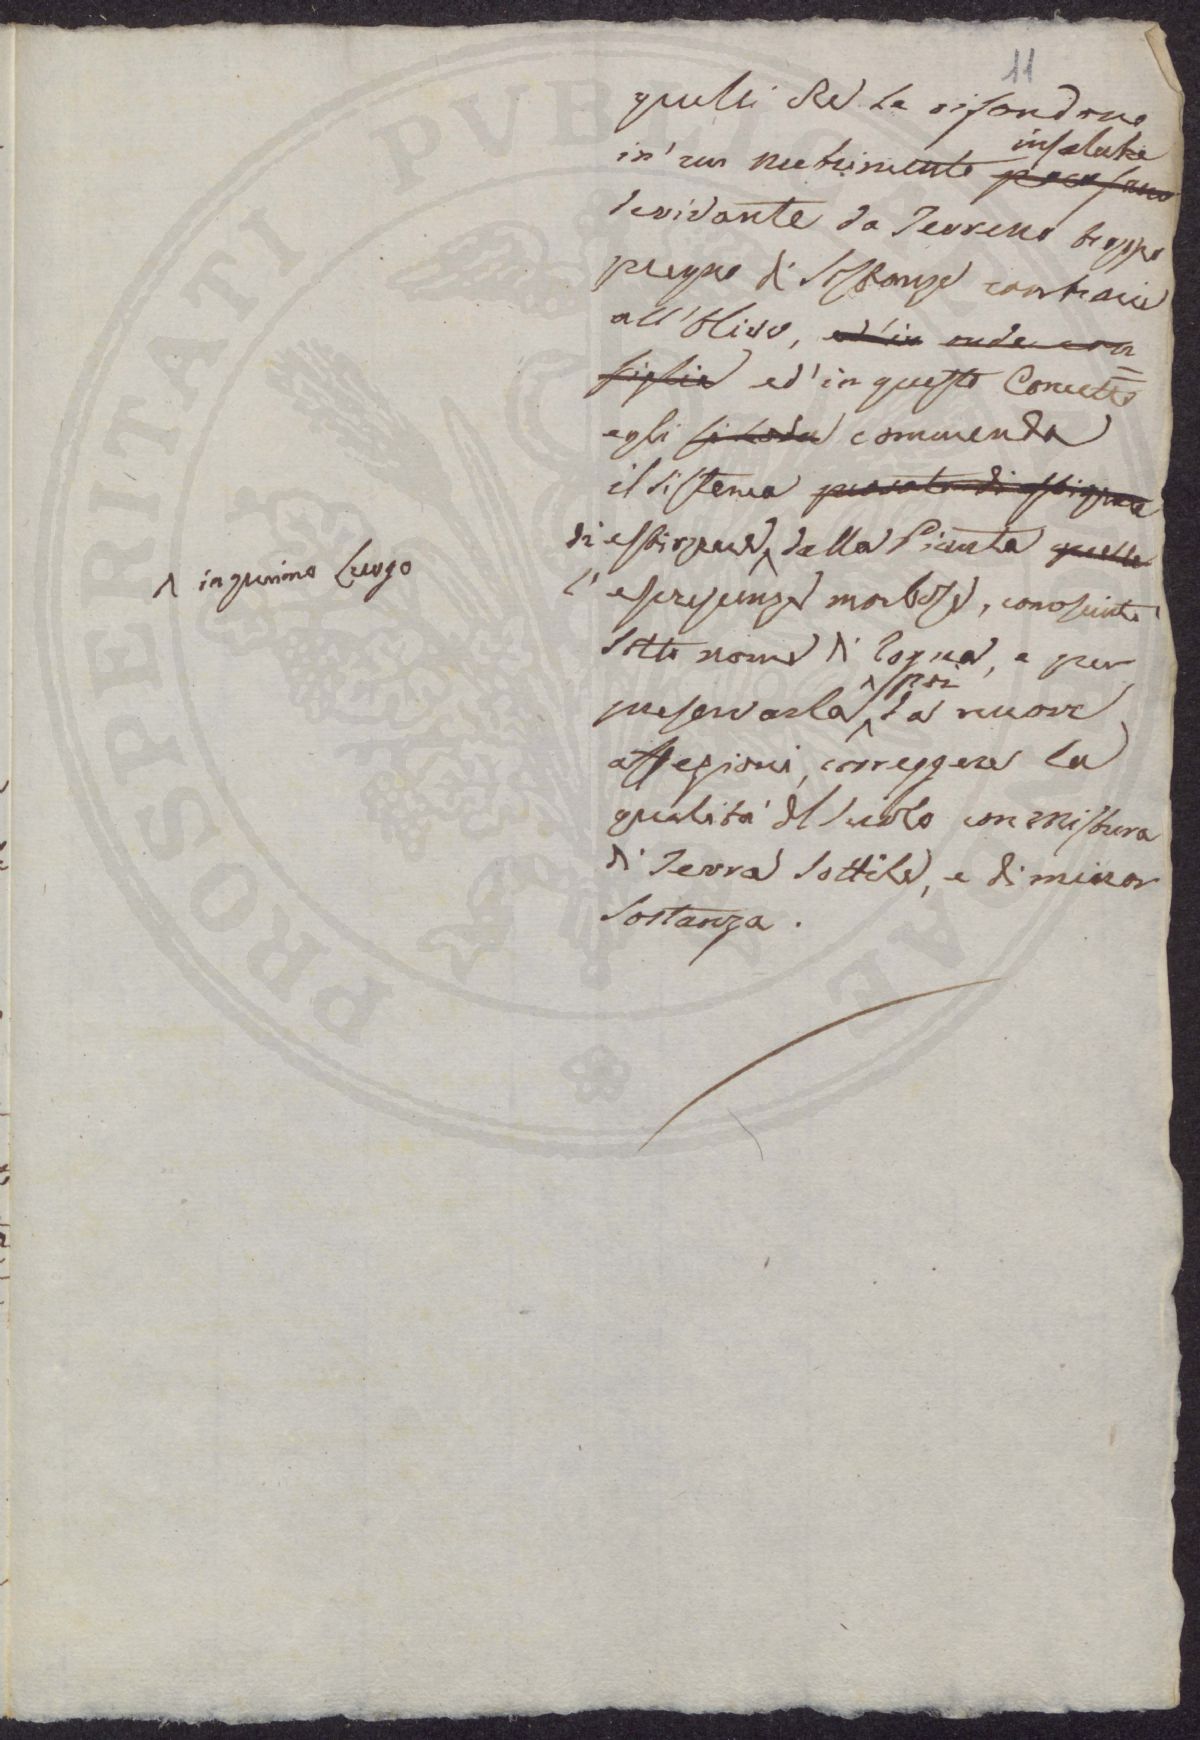 11
quelli che la rifondono
insalubre
in'un nutrimento poco sano
derivante da Terreno troppo
pregno di Sostanze contrarie
all'Olivo, ed'in onde con=
siglia ed'in questo Concetto
egli si loda commenda
il sistema
di estirpare ^ dalla Pianta quelle
^ in primo Luogo
l'escrescenze morbose, conosciute
sotto nome di Rogna, e per
^ poi
preservarla ^ da nuove
affezioni, correggere la
qualità del Suolo con mistura
di Terra sottile, e di minor
sostanza.
PROSPERITATI PVBLICAE